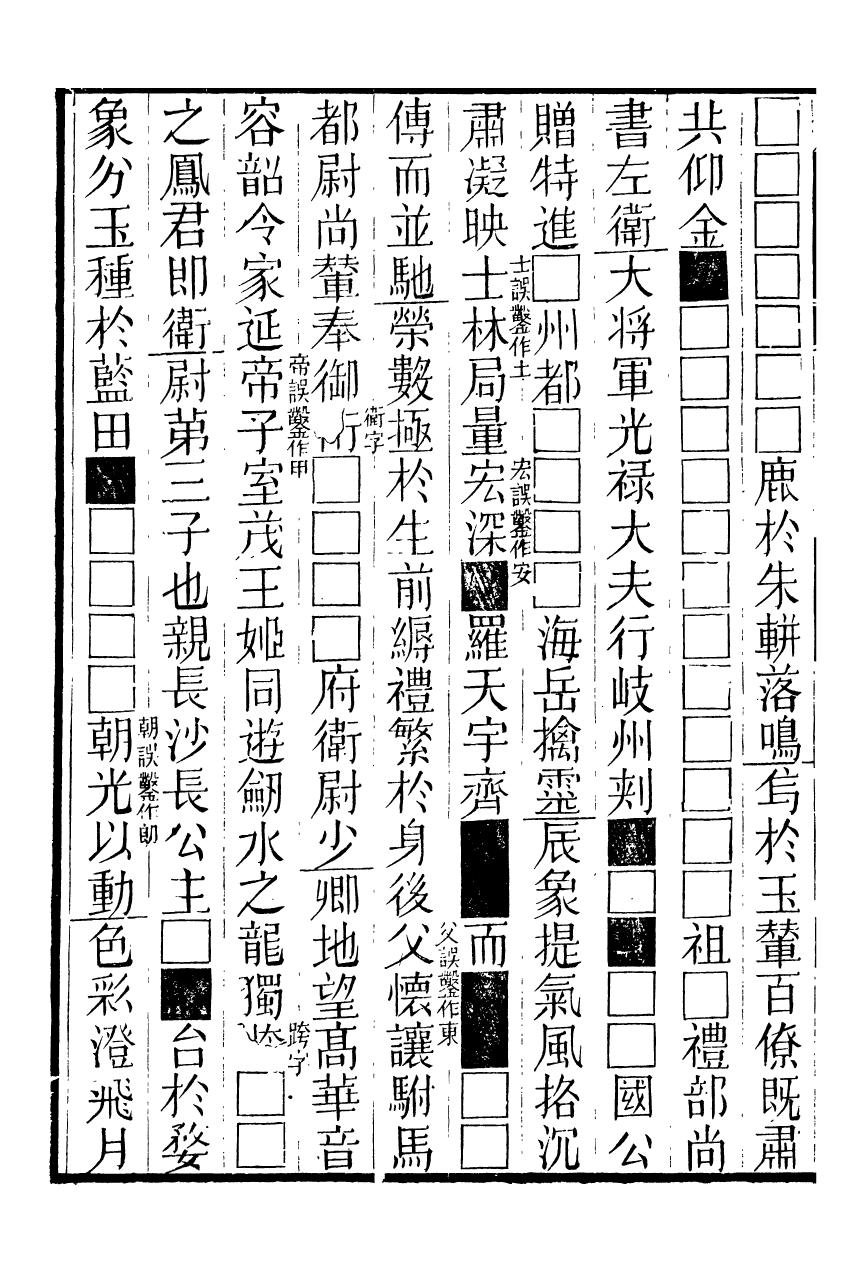 □□□□□□□鹿於朱軿落鳴於玉輦百僚既肅
共仰金■□□□□□□□□□□□□祖□禮部尚
書左衛大將軍光祿大夫行岐州刺■□■□□國公
贈特進□州都□□□□海岳擒靈辰象提氣風挌沉
肅凝映士士誤鑿作土林局量宏宏誤鑿作安深■羅天宇齊■■而■■□□
傳而並馳榮數極於生前縟禮繁於身後父父誤鑿作東懷讓駙馬
都尉尚輦奉御衛字□□□□府衛尉少卿地望高華音
容韶令家延帝帝誤鑿作甲子室茂王姬同遊劒水之龍獨跨字□□
之鳳君即衛尉第三子也親長沙長公主□■台於婺
象分玉種於藍田■□□□□朝朝誤鑿作朗光以動色彩澄飛月